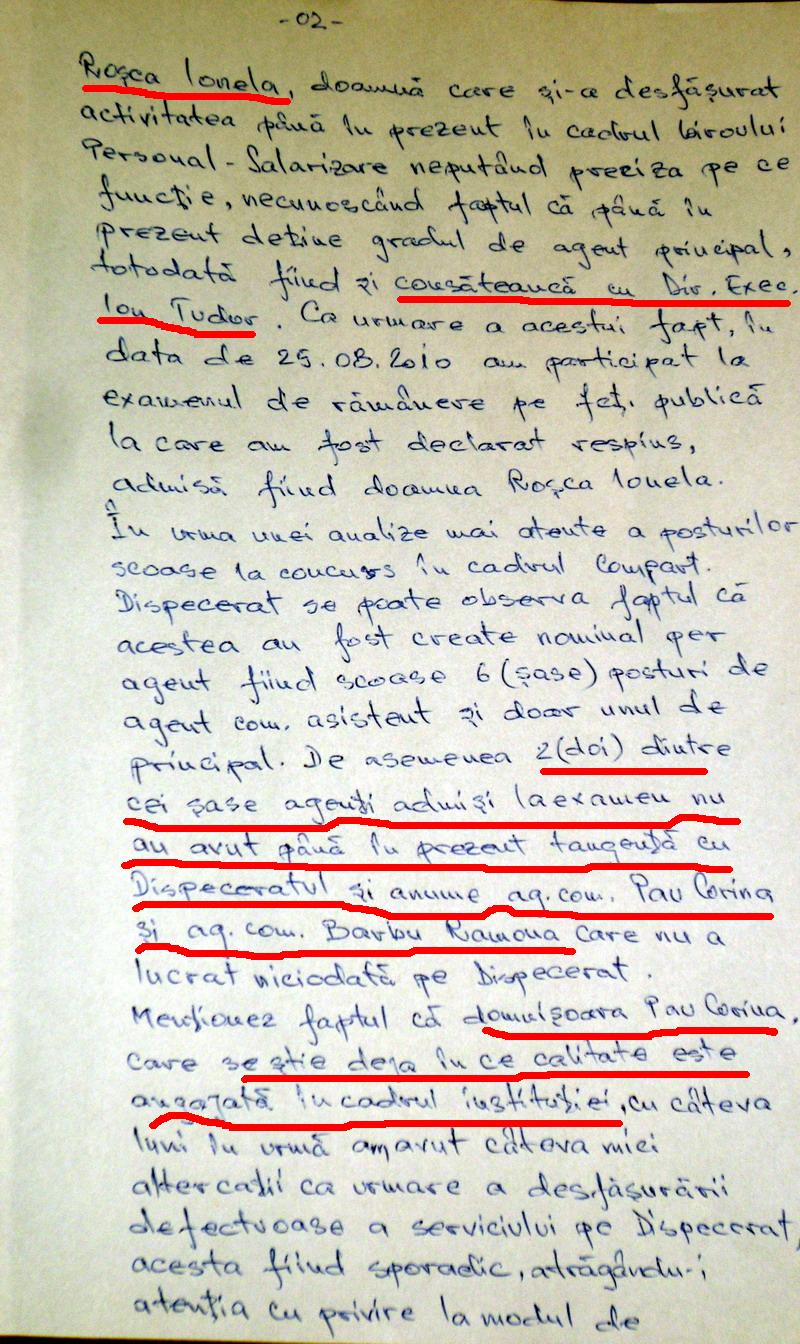 -02-
Roșca Ionela, doamnă care și-a desfășurat
activitatea până în prezent în cadrul biroului
Personal-Salarizare neputând preciza pe ce
funcție, necunoscând faptul că până în
prezent deține gradul de agent principal,
totodată fiind și consăteancă cu Dir. Exec.
Ion Tudor. Ca urmare a acestui fapt, în
data de 25.08.2010 am participat la
examenul de rămânere pe fcț. publică
la care am fost declarat respins,
admisă fiind doamna Roșca Ionela.
În urma unei analize mai atente a posturilor
scoase la concurs în cadrul Compart.
Dispecerat se poate observa faptul că
acestea au fost create nominal per
agent fiind scoase 6 (șase) posturi de
agent com. asistent și doar unul de
principal. De asemenea 2(doi) dintre
cei șase agenți admiși la examen nu
au avut până în prezent tangență cu
Dispeceratul și anume ag. com. Pau Corina
și ag. com. Barbu Ramona care nu a
lucrat niciodată pe Dispecerat.
Menționez faptul că domnișoara Pau Corina,
care se știe deja în ce calitate este
angajată în cadrul instituției, cu câteva
luni în urmă am avut câteva mici
altercații ca urmare a desfășurării
defectuoase a serviciului pe Dispecerat,
acesta fiind sporadic, atrăgându-i
atenția cu privire la modul de